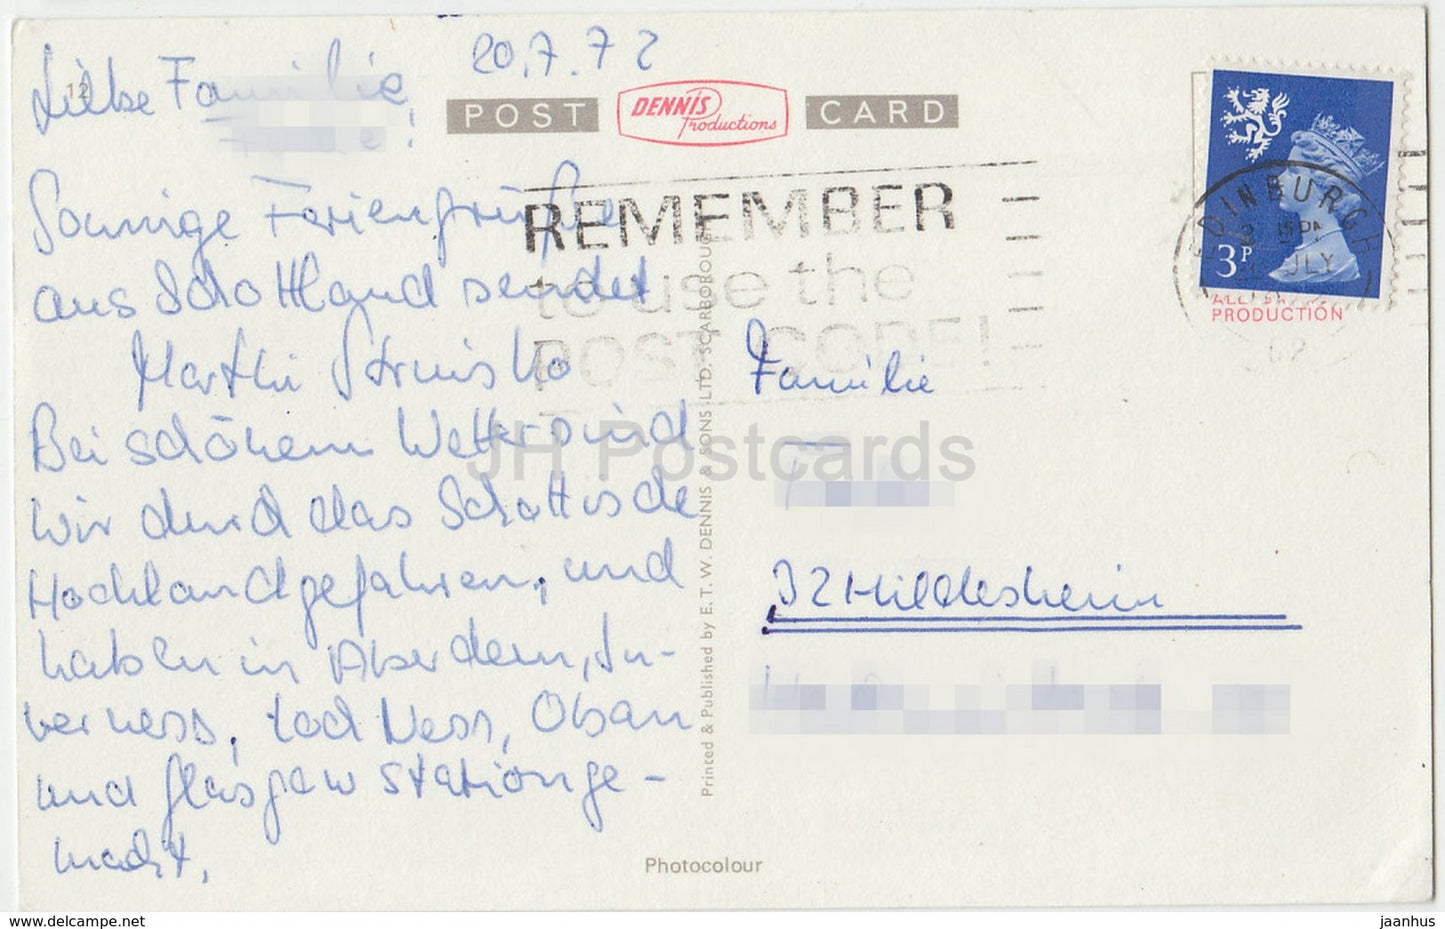 20.7.72
12
Liebe Familie
POST DENNIS Productions CARD
Sonnige Feriengrüße
aus Schottland sendet
Bei schönem Wetter sind
wir durch das Schottische
Hochland gefahren, und
haben in Aberdeen, In-
verness, Loch Ness, Oban
und Glasgow Station ge-
macht.
REMEMBER
to use the
POST CODE!
EDINBURGH
JLY
3P
PRODUCTION
Familie
32 Hildesheim
Printed & Published by E. T. W. DENNIS & SONS LTD. SCARBOROUGH
Photocolour
JH Postcards
www.delcampe.net
jaanhus